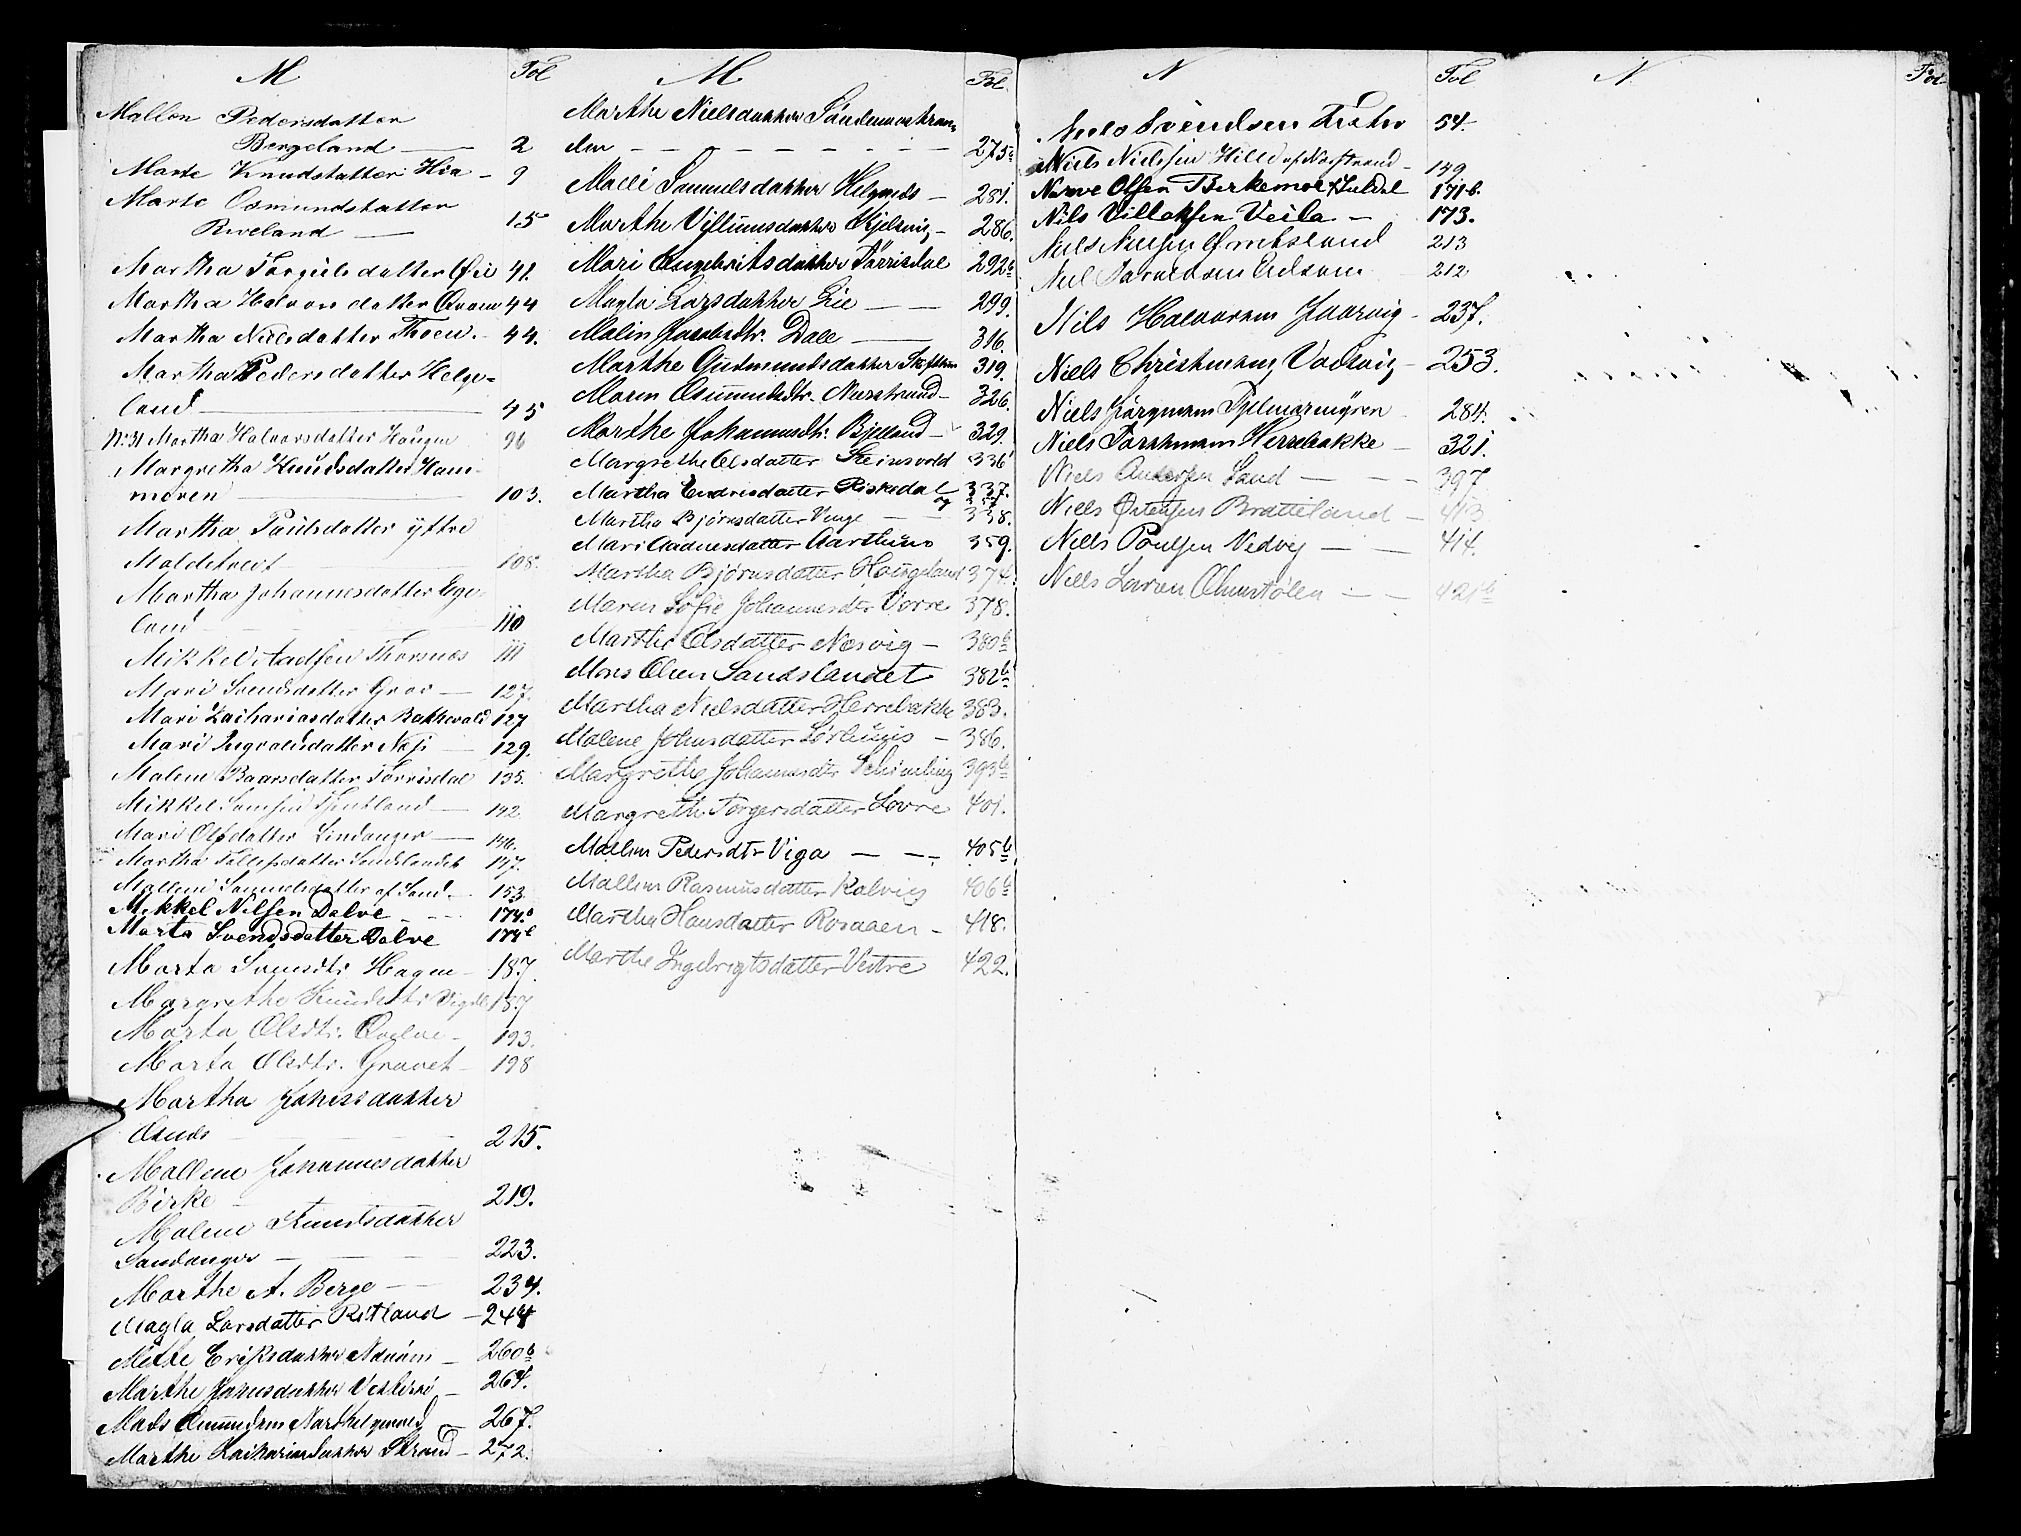 M Fol
Mallen Pedersdatter
Bergeland — 2
Marte Knudsdatter Hia - 9
Marte Osmundsdatter
Riveland — 15
Martha Torgilsdatter Øie 41.
Martha Halvorsdatter Qvam 44
Martha Nielsdatter Thoen. - 44.
Martha Pedersdatter Helge-
land — 45
No 31 Martha Halvorsdatter Haugen 96
Margretha Knudsdatter Ham-
meren — 103.
Martha Paulsdatter yttre
Moldetvedt — 108.
Martha Johannesdatter Ege-
land — 110
Mikkel Aadsen Thorsnes 111
Mari Svendsdatter Grov — 127.
Mari Zachariasdatter Bakkevold 127
Mari Ingvaldsdatter Nési — 129.
Malene Baarsdatter Tørrisdal 135.
Mikkel Samsen Tjentland — 142.
Mari Olsdatter Lindanger — 146.
Martha Tollefsdatter Sandslandet 147.
Mallene Samuelsdatter af Sand. - 153
Mikkel Nilsen Dalve - - - 174.
Marta Svendsdatter Dalve 174b
Marta Svendsdtr Hagen - 187.
Margrethe Knudsdtr Vigdl 187
Marta Olsdtr. Qvelve - 193.
Marta Olsdtr. Gravet - 198
Martha Johnsdatter
Osnes — 215.
Mallene Johannesdatter
Birke — 219.
Malene Knudsdatter
Sandanger — 223.
Marthe A. Berge — 234.
Magla Larsdatter Ritland — 244
Mette Eriksdatter - 260b
Marthe Hansdatter - 264.
Mads Amundsen 267.
Marthe Zachariasdatter Strand — 272.
M Fol.
Marthe Nielsdatter Søndenaastran-
den — 275a
Malli Samuelsdatter Helgenes — 281.
Marthe Villumsdatter Kjelsvig - 286.
Mari Engebritsdatter Tørrisdal 292b
Magla Larsdatter Lie — 299.
Malin Jacobsdtr. Dale — 316.
Marthe Gudmundsdatter 319.
Maren Osmundsdtr. Nærstrand - 326.
Marthe Johannesdtr. Bjelland - 329.
Margrethe Olsdatter Steinsvold 336
Martha Endresdatter Riskedal 337.
Martha Bjørnsdatter Vinge — og 338.
Mari Aadnesdatter Aarthun 359.
Martha Bjørnsdatter Haugeland 374.
Maren Sofie Johannesdtr Vorre 378.
Marthe Olsdatter Nesvig - 380b
Mons Olsen Sandslandet 382b
Martha Nielsdatter Herrebakke 383.
Malene Johnsdatter Sørhuus - 386.
Margrethe Johannesdtr 393b
Margrethe Torgersdatter Lovre 401.
Mallin Pedersdtr Viga — 405b
Mallin Rasmusdatter Kalvig 406b
Martha Hansdatter Rosaaen - 418.
Marthe Ingebrigtsdatter Vestre 422.
N Fol
Niels Svendsen 54.
Niels Nielsen Hille af Nærstrand - 149
Narve Olsen Birkemoe i Suldal 171b.
Nils Villaksen Veila — 173.
Niels Nielsen 213
212
Nils Halvorsen Haarvig - 237.
Niels Christensen Vadsvig - 253.
Niels Jørgensen 284.
Niels Torstensen Herrebakke — 321.
Niels Andersen Sand — 397
Niels Østensen Bratteland — 413
Niels Poulsen Vedvig — 414.
Niels Larsen Almestølen — 421b
N Fol